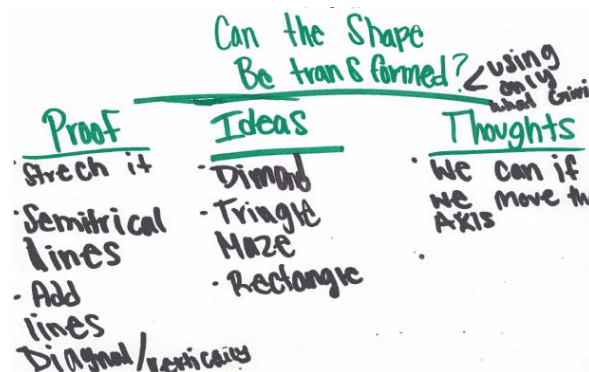 Can the Shape
Be transformed?
< using
only
what Givi
Proof
· Strech it
· Semitrical
lines
· Add
lines
Diagnal/vertically
Ideas
· Dimond
· Tringle
Maze
· Rectangle
Thoughts
· We can if
we move th
AXIS
·